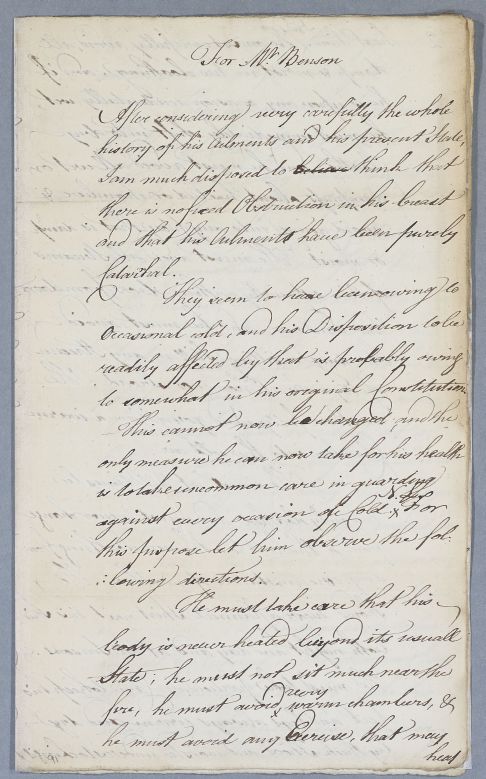 For Mr Benson
After considering very carefully the whole
history of his Ailments and his present State,
I am much disposed to believe think that
there is no fixed Obstruction in his breast
and that his Ailments have been purely
Catarhal.
They seem to have been owing to
Occasional cold, and his Disposition to be
readily affected by that is probably owing
to somewhat in his original Constitution
This cannot now be changed and the
only measure he can now take for his health
is to take uncommon care in guarding
against every occasion of Cold. For
this purpose let him observe the fol:
:lowing directions.
He must take care that his
body is never heated beyond its usuall
State; he must not sit much near the
very
fire, he must avoid warm chambers, &
he must avoid any Exercise, that may
heat